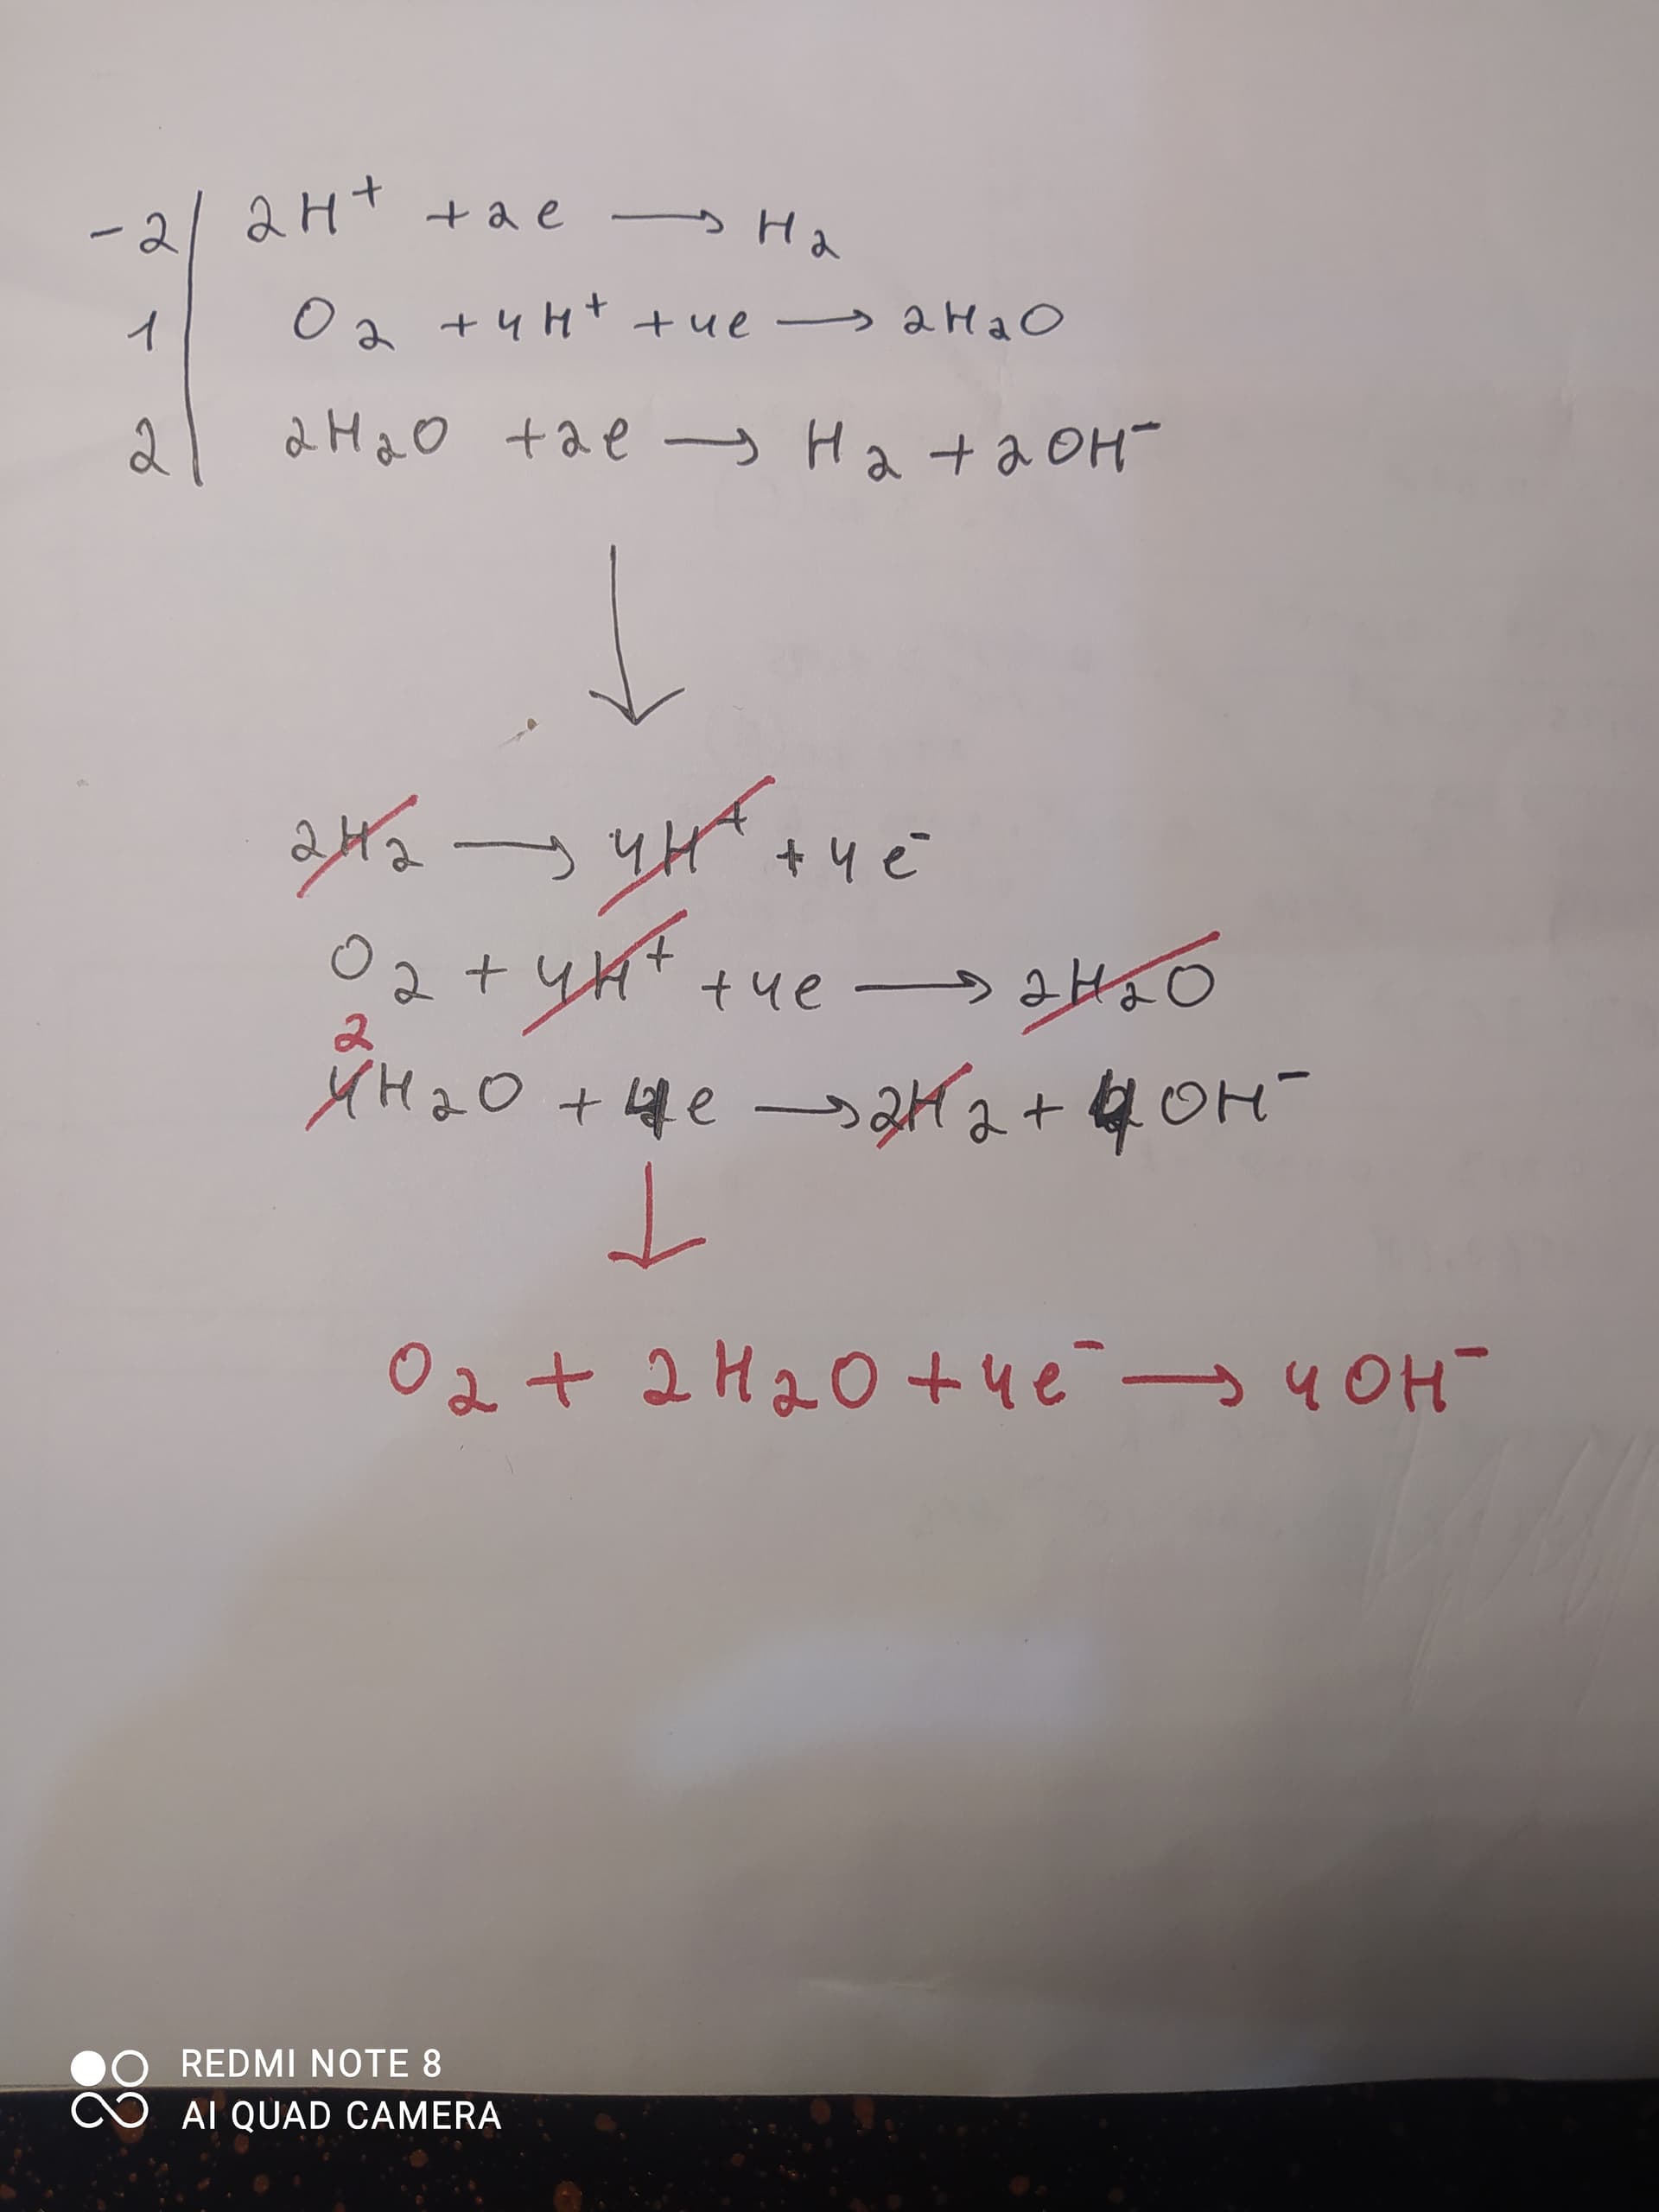 -2 | 2H⁺ + 2e ⟶ H₂
1 | O₂ + 4H⁺ + 4e ⟶ 2H₂O
2 | 2H₂O + 2e ⟶ H₂ + 2OH⁻
2H₂ ⟶ 4H⁺ + 4e⁻
O₂ + 4H⁺ + 4e ⟶ 2H₂O
2
4H₂O + 4e ⟶ 2H₂ + 4OH⁻
O₂ + 2H₂O + 4e⁻ ⟶ 4OH⁻
REDMI NOTE 8
AI QUAD CAMERA